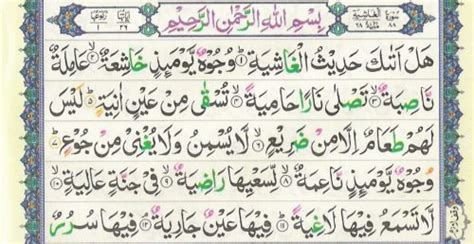 سُوْرَةُ الْغَاشِيَةِ ٨٨ مَكِّيَّةٌ ٦٨ بِسْمِ اللّٰهِ الرَّحْمٰنِ الرَّحِيْمِ اٰيَاتُهَا ٢٦ رُكُوْعُهَا ١
هَلْ اَتٰىكَ حَدِيْثُ الْغَاشِيَةِ ۱ وُجُوْهٌ يَّوْمَئِذٍ خَاشِعَةٌ ۲ عَامِلَةٌ
نَّاصِبَةٌ ۳ تَصْلٰى نَارًا حَامِيَةً ۴ تُسْقٰى مِنْ عَيْنٍ اٰنِيَةٍ ۵ لَيْسَ
لَهُمْ طَعَامٌ اِلَّا مِنْ ضَرِيْعٍ ۶ لَّا يُسْمِنُ وَلَا يُغْنِيْ مِنْ جُوْعٍ ۷
وُجُوْهٌ يَّوْمَئِذٍ نَّاعِمَةٌ ۸ لِّسَعْيِهَا رَاضِيَةٌ ۹ فِيْ جَنَّةٍ عَالِيَةٍ ۱۰
لَّا تَسْمَعُ فِيْهَا لَاغِيَةً ۱۱ فِيْهَا عَيْنٌ جَارِيَةٌ ۱۲ فِيْهَا سُرُرٌ